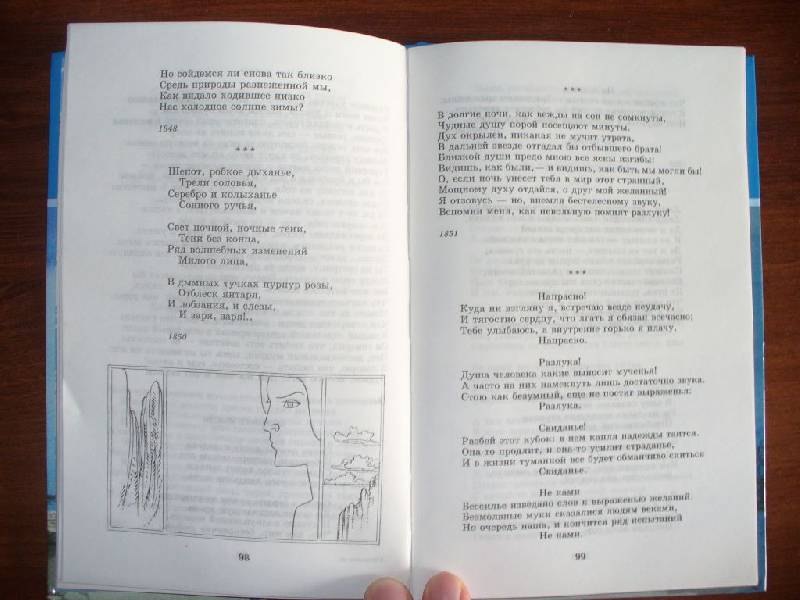 Но сойдемся ли снова так близко
Средь природы разнеженной мы,
Как видало ходившее низко
Нас холодное солнце зимы?
1848
* * *
Шепот, робкое дыханье,
Трели соловья,
Серебро и колыханье
Сонного ручья,
Свет ночной, ночные тени,
Тени без конца,
Ряд волшебных изменений
Милого лица,
В дымных тучках пурпур розы,
Отблеск янтаря,
И лобзания, и слезы,
И заря, заря!..
1850
98
* * *
В долгие ночи, как вежды на сон не сомкнуты,
Чудные душу порой посещают минуты.
Дух окрылен, никакая не мучит утрата,
В дальней звезде отгадал бы отбывшего брата!
Близкой души предо мною все ясны изгибы:
Видишь, как были, — и видишь, как быть мы могли бы!
О, если ночь унесет тебя в мир этот странный,
Мощному духу отдайся, о друг мой желанный!
Я отзовусь — но, внемля бестелесному звуку,
Вспомни меня, как невольную помнят разлуку!
1851
* * *
Напрасно!
Куда ни взгляну я, встречаю везде неудачу,
И тягостно сердцу, что лгать я обязан всечасно;
Тебе улыбаюсь, а внутренне горько я плачу,
Напрасно.
Разлука!
Душа человека какие выносит мученья!
А часто на них намекнуть лишь достаточно звука.
Стою как безумный, еще не постиг выраженья:
Разлука.
Свиданье!
Разбей этот кубок: в нем капля надежды таится.
Она-то продлит, и она-то усилит страданье,
И в жизни туманной все будет обманчиво сниться
Свиданье.
Не нами
Бессилье изведано слов к выраженью желаний.
Безмолвные муки сказалися людям веками,
Но очередь наша, и кончится ряд испытаний
Не нами.
99